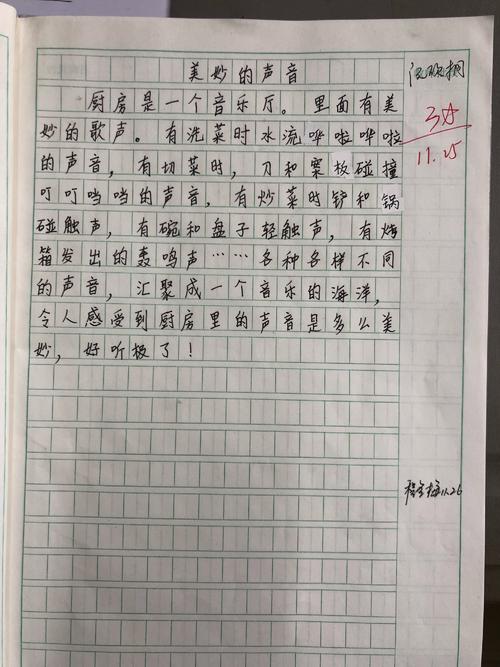 美妙的声音
厨房是一个音乐厅。里面有美
妙的歌声。有洗菜时水流哗啦哗啦
的声音，有切菜时，刀和案板碰撞
叮叮当当的声音，有炒菜时铲和锅
碰触声，有碗和盘子轻触声，有烤
箱发出的轰鸣声……各种各样不同
的声音，汇聚成一个音乐的海洋，
令人感受到厨房里的声音是多么美
妙，好听极了！
11.25
11.26